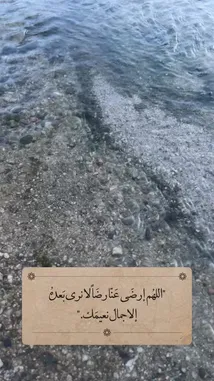 "اللهُم إرضَى عَنّا رضَاً لا نرى بَعدهُ
إلا جمال نعيمَك."